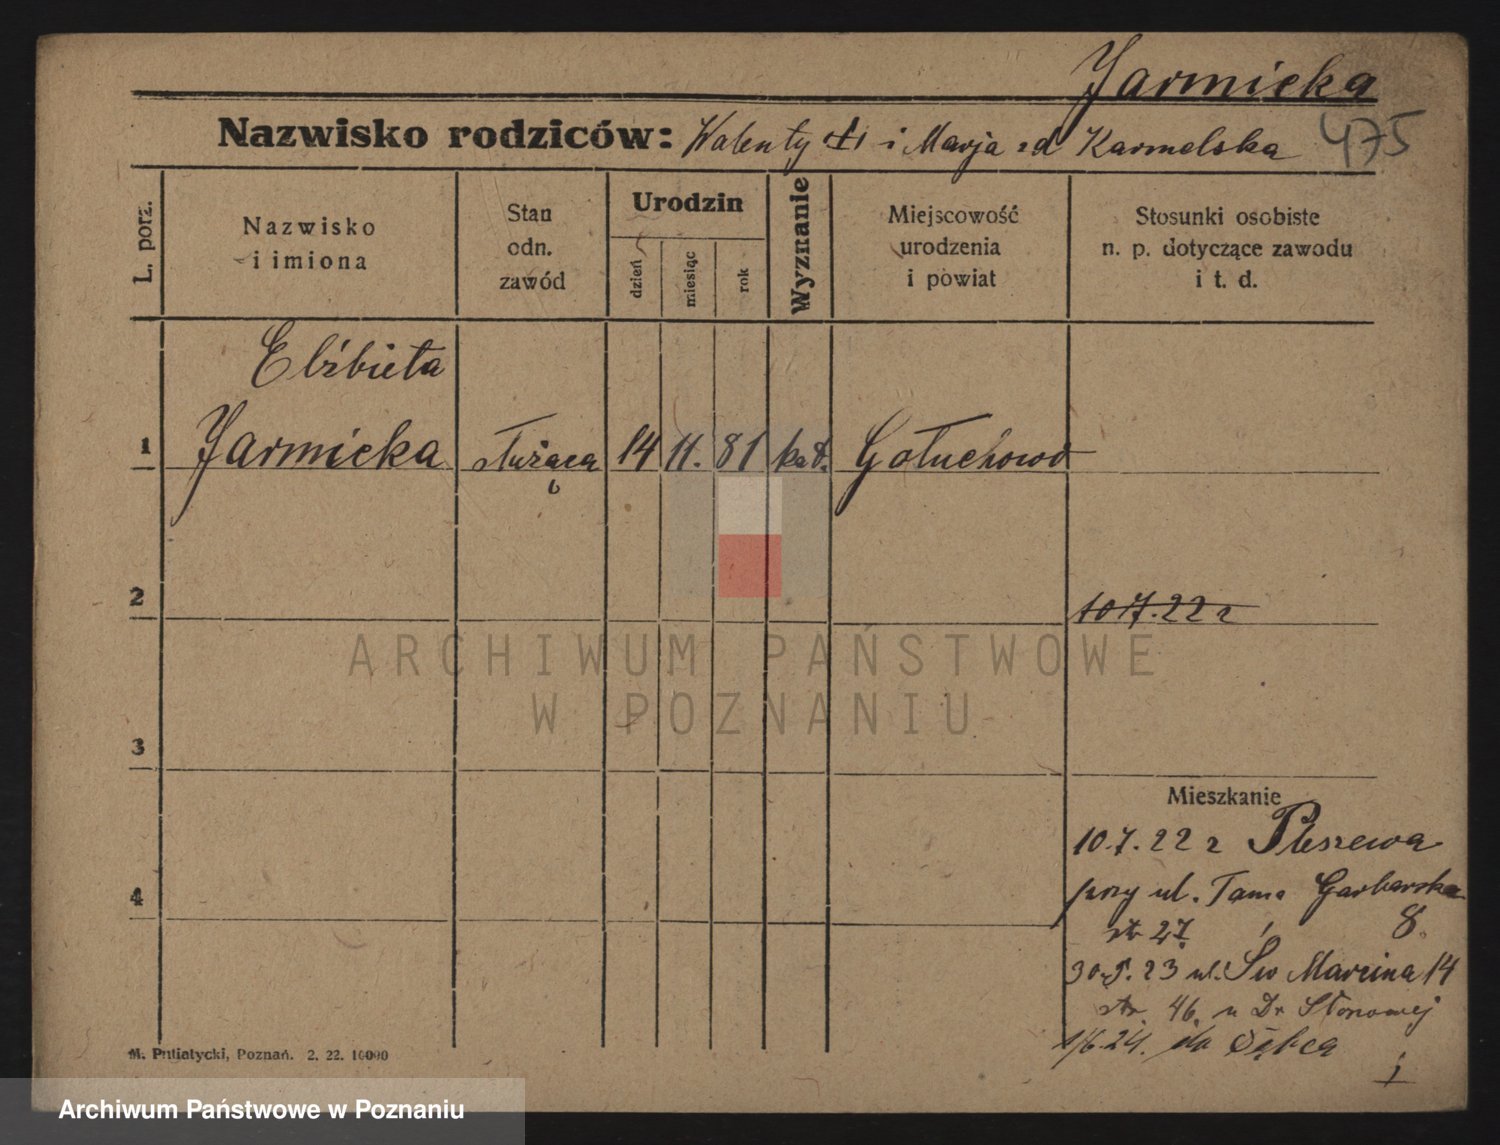 Jarmicka
475
Nazwisko rodziców: Walenty i Marja zd Karmelska
L. porz.
Nazwisko
i imiona
Stan
odn.
zawód
Urodzin
dzień
miesiąc
rok
Wyznanie
Miejscowość
urodzenia
i powiat
Stosunki osobiste
n. p. dotyczące zawodu
i t. d.
Elżbieta
1 Jarmicka służąca 14 11. 81 kat. Gołuchowo
2
10 7. 22 r
ARCHIWUM PAŃSTWOWE
W POZNANIU
3
Mieszkanie
10.7.22 r Pleszewa
4
przy ul. Tama Garbarska
str 27. 8.
30.5.23 ul. Św Marcina 14
str. 46. u Dr Słonowej
1/6.24. do
1
M. Putiatycki, Poznań. 2. 22. 10000
Archiwum Państwowe w Poznaniu